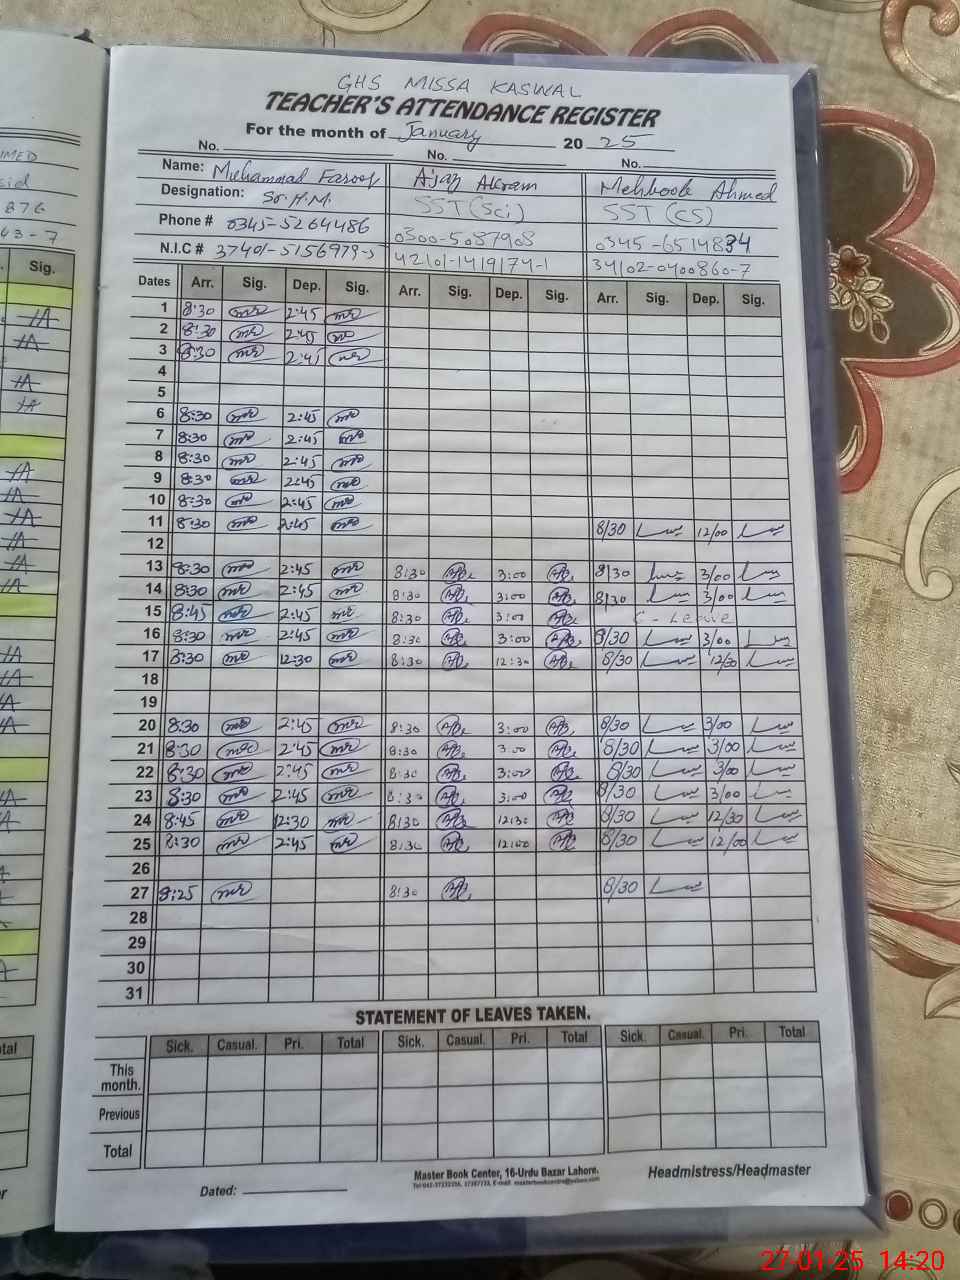 GHS MISSA KASWAL
TEACHER'S ATTENDANCE REGISTER
For the month of January 20 25
No. No. No.
Name: Muhammad Farooq Aijaz Akram Mehboob Ahmed
Designation: Sr. H.M. SST (Sci) SST (CS)
Phone # 0345-5264486 0300-5087908 0345-6514834
N.I.C # 37401-5156979-5 42101-1419174-1 34102-0400860-7
Dates Arr. Sig. Dep. Sig. Arr. Sig. Dep. Sig. Arr. Sig. Dep. Sig.
1 8:30 2:45
2 8:30 2:45
3 8:30 2:45
4
5
6 8:30 2:45
7 8:30 2:45
8 8:30 2:45
9 8:30 2:45
10 8:30 2:45
11 8:30 2:45 8/30 12/00
12
13 8:30 2:45 8:30 3:00 8/30 3/00
14 8:30 2:45 8:30 3:00 8/30 3/00
15 8:45 2:45 8:30 3:00 C-Leave
16 8:30 2:45 8:30 3:00 8/30 3/00
17 8:30 12:30 8:30 12:30 8/30 12/30
18
19
20 8:30 2:45 8:30 3:00 8/30 3/00
21 8:30 2:45 8:30 3:00 8/30 3/00
22 8:30 2:45 8:30 3:00 8/30 3/00
23 8:30 2:45 8:30 3:00 8/30 3/00
24 8:45 12:30 8:30 12:30 8/30 12/30
25 8:30 2:45 8:30 12:00 8/30 12/00
26
27 8:25 8:30 8/30
28
29
30
31
STATEMENT OF LEAVES TAKEN.
Sick. Casual. Pri. Total Sick. Casual. Pri. Total Sick. Casual. Pri. Total
This
month.
Previous
Total
Master Book Center, 16-Urdu Bazar Lahore.
Headmistress/Headmaster
Dated:
Sig.
27-01-25 14:20